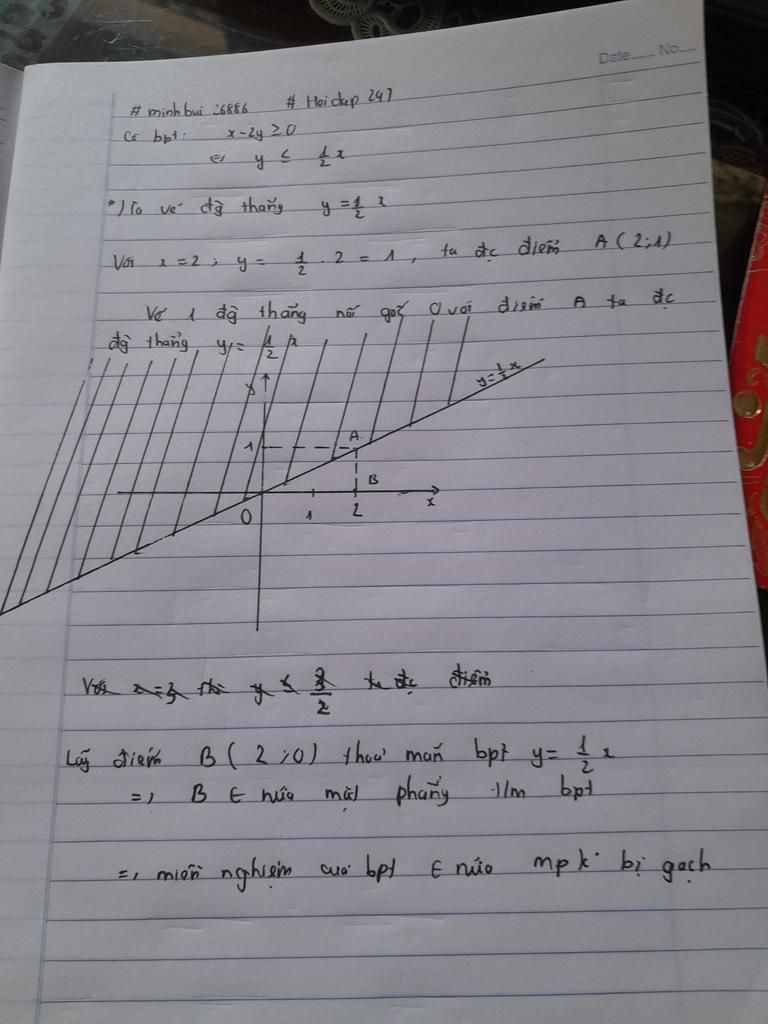 Date...... No....
# minhbui 26886 # Hoidap 247
Có bpt: x-2y ≥ 0
⇔ y ≤ 1/2 x
*) Ta vẽ đg thẳng y = 1/2 x
Với x = 2 ; y = 1/2 . 2 = 1 , ta đc điểm A ( 2 ; 1 )
Vẽ 1 đg thẳng nối gốc O với điểm A ta đc
đg thẳng y = 1/2 x
y
y = 1/2 x
1 A
B
O 1 2 x
Với x = 3 thì y ≤ 3/2 ta đc điểm
Lấy điểm B ( 2 ; 0 ) thoả mãn bpt y = 1/2 x
=> B ∈ nửa mặt phẳng t/m bpt
=> miền nghiệm của bpt ∈ nửa mp k bị gạch